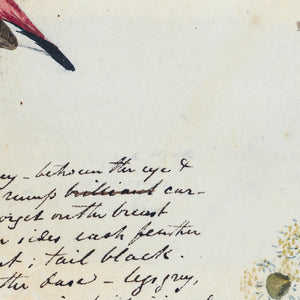 ey – between the eye &
rump brilliant car-
orget on the breast
r sides each feather
nt; tail black.
the base – legs grey,